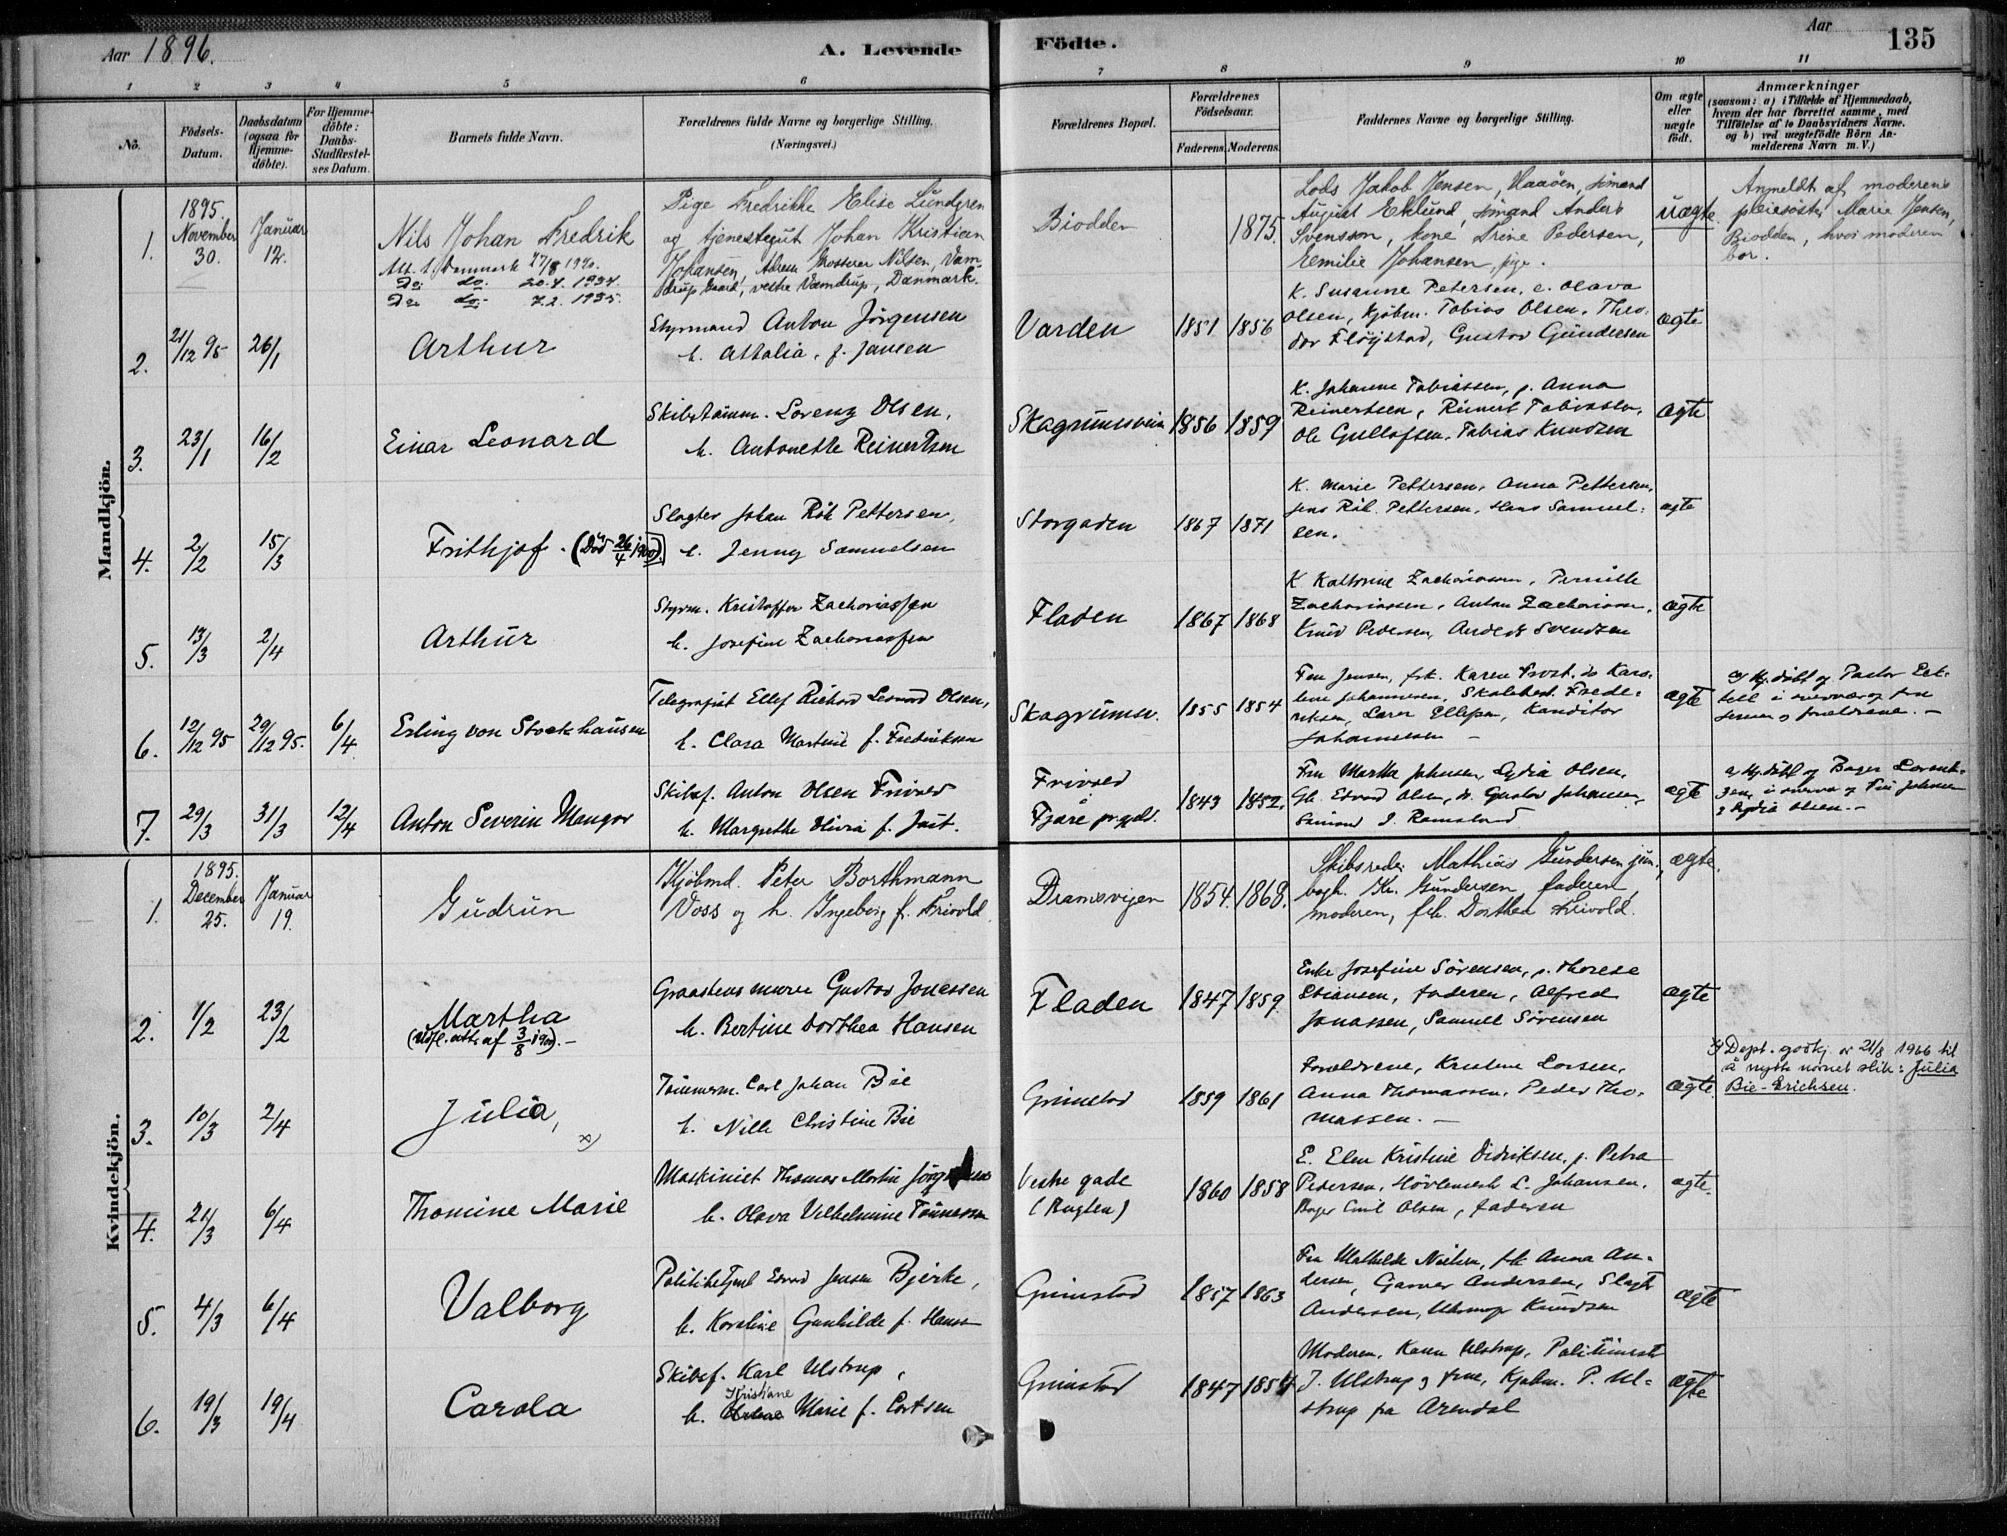 Aar 1896.
A. Levende Födte.
Aar
135
1 2 3 4 5 6 7 8 9 10 11
No.
Födsels-Datum.
Daabsdatum (ogsaa for Hjemme-döbte).
For Hjemme-döbte: Daabs-Stadfæstel-ses Datum.
Barnets fulde Navn.
Forældrenes fulde Navne og borgerlige Stilling. (Næringsvei.)
Forældrenes Bopæl.
Forældrenes Födselsaar.
Faderens. Moderens.
Faddernes Navne og borgerlige Stilling.
Om ægte eller uægte födt.
Anmærkninger
(saasom: a) i Tilfælde af Hjemmedaab, hvem der har forrettet samme, med Tilföielse af to Daabsvidners Navne. og b) ved uægtefödte Börn An-melderens Navn m. V.)
Mandkjön.
1.
1895. November 30.
Januar 12.
Nils Johan Fredrik
Att. t. Danmark 27/8 1920.
Do do. 20.4.1934.
Do do. 7.2.1935.
Pige Fredrikke Elise Lundgren
og tjenestegut Johan Kristian
Johansen, Adresse Nilsen, Vam-
drup Gaard, vestre Vamdrup, Danmark.
Biodden
1875.
Lods Jakob Jensen, Haaöen, sömand
August Eklund, sömand Anders
Svensson, kone Trine Pedersen,
Emilie Johansen, pige.
uægte.
Anmeldt af moderens
pleiesöster Marie Jensen,
Biodden, hvor moderen
bor.
2.
21/12 95
26/1
Arthur
Styrmand Anton Jörgensen
h. Attalia, f. Jansen
Varden
1851 1856
K. Susanne Petersen, e. Olava
Olsen, Kjöbm. Tobias Olsen, Theo-
dor Flöystad, Gustav Gundersen
ægte
3.
23/1
16/2
Einar Leonard
Skibstömm. Lorenz Olsen,
h. Antonette Reinertsen
1856 1859
K. Johanne Tobiassen, p. Anna
Reinertsen, Reinert Tobiassen,
Ole Gullofsen, Tobias Knudsen
ægte
4.
2/2
15/3
Frithjof. (Död 26/4 1900).
Slagter Johan Pettersen,
h. Jenny Samuelsen
Storgaden
1867 1871
K. Marie Pettersen, Anna Pettersen,
Jens Pettersen, Hans Samuel-
sen.
ægte
5.
13/3
2/4
Arthur
Styrm. Kristoffer Zachariassen
h. Josefine Zachariassen
Fladen
1867 1868
K. Kathrine Zachariassen, Pernille
Zachariassen, Anton Zachariassen,
Knud Pedersen, Anders Svendsen
ægte
6.
12/12 95
29/12 95.
6/4
Erling von Stockhausen
Telegrafist Ellef Richard Leonard Olsen,
h. Clara Martine f. Fredriksen
Skagrummer.
1855 1854
Fru Jensen, frk. Karen Frost, do Karo-
line Johannesen, Skolebest. Frede-
riksen, Lærer Ellefsen, Konditor
Johannessen
ægte
a) Hj.döbt af Pastor
i overvær af fru
Jensen og forældrene.
7.
29/3
31/3
12/4
Anton Severin Mangor
Skibsf. Anton Olsen Frivold
h. Margrethe Olivia f. Just.
Frivold
Fjære pr.gjeld.
1843 1852.
Fru Martha Johnsen, Lydia Olsen,
Edvard Olsen, do. Gustav Johansen,
Sömand J. Ramsland
ægte
a) Hj.döbt af Bager
i overvær af Johnsen
og Lydia Olsen.
Kvindekjön.
1.
1895. December 25.
Januar 19.
Gudrun
Kjöbmd. Peter Borthmann
Voss og h. Ingeborg f. Frivold.
Dramsvigen
1854. 1868.
Skibsreder Mathias Gundersen jun.,
bogh. Kr. Gundersen, faderen,
moderen, frk. Dorthea Frivold.
ægte.
2.
1/2
23/2
Martha
(Udfl. att. af 3/8 1900).
Graastensmurer Gustav Jonassen
h. Bertine Dorthea Hansen
Fladen
1847 1859
Enke Josefine Sörensen, p. Therese
Stiansen, faderen, Alfred
Jonassen, Samuel Sörensen
ægte
3.
10/3
2/4
Julia, x)
Tömmerm. Carl Johan Bie
h. Nille Christine Bie
Grimstad
1859 1861
Forældrene, Kristine Larsen,
Anna Thomassen, Peder Tho-
massen.
ægte.
x) Dept. godkj. av 21/8 1966 til
å nytte navnet slik: Julia
Bie-Erichsen.
4.
21/3
6/4
Thomine Marie
Maskinist Thomas Martin Jörgensen
h. Olava Vilhelmine Tönnessen
Vestre gade
(Bugten)
1860 1858
E. Elen Kristine Didriksen, p. Petra
Pedersen, L. Johansen,
Bager Emil Olsen, faderen
ægte.
5.
4/3
6/4
Valborg
Politibetjent Edvard Jensen Bjerke,
h. Karoline Gunhilde f. Hansen
Grimstad
1857 1863
Fru Mathilde Nielsen, frk Anna An-
dersen, Garver Andersen, Slagter
Andersen, Knudsen
ægte
6.
19/3
19/4
Carola
Skibsf. Karl Ulstrup,
h. Kristiane Marie f. Cortsen
Grimstad
1847 1854
Moderen, Karen Ulstrup, Politimester
J. Ulstrup og frue, Kjøbm. P. Ul-
strup fra Arendal
ægte